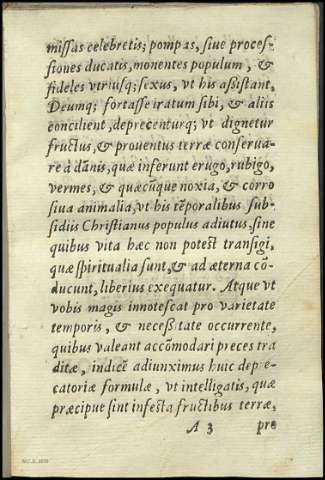 missas celebretis; pompas, siue proces-
siones ducatis, monentes populum, &
fideles vtriusq; sexus, vt his assistant,
Deumq; fortasse iratum sibi, & aliis
concilient, deprecenturq; vt dignetur
fructus, & prouentus terræ conserua-
re à dānis, quæ inferunt erugo, rubigo,
vermes, & quæcūque noxia, & corro
siua animalia, vt his tēporalibus sub-
sidiis Christianus populus adiutus, sine
quibus vita hæc non potest transigi,
quæ spiritualia sunt, & ad æterna cō-
ducunt, liberius exequatur. Atque vt
vobis magis innotescat pro varietate
temporis, & necessitate occurrente,
quibus valeant accōmodari preces tra
ditæ, indicē adiunximus huic depre-
catoriæ formulæ, vt intelligatis, quæ
præcipue sint infesta fructibus terræ,
A 3 præ